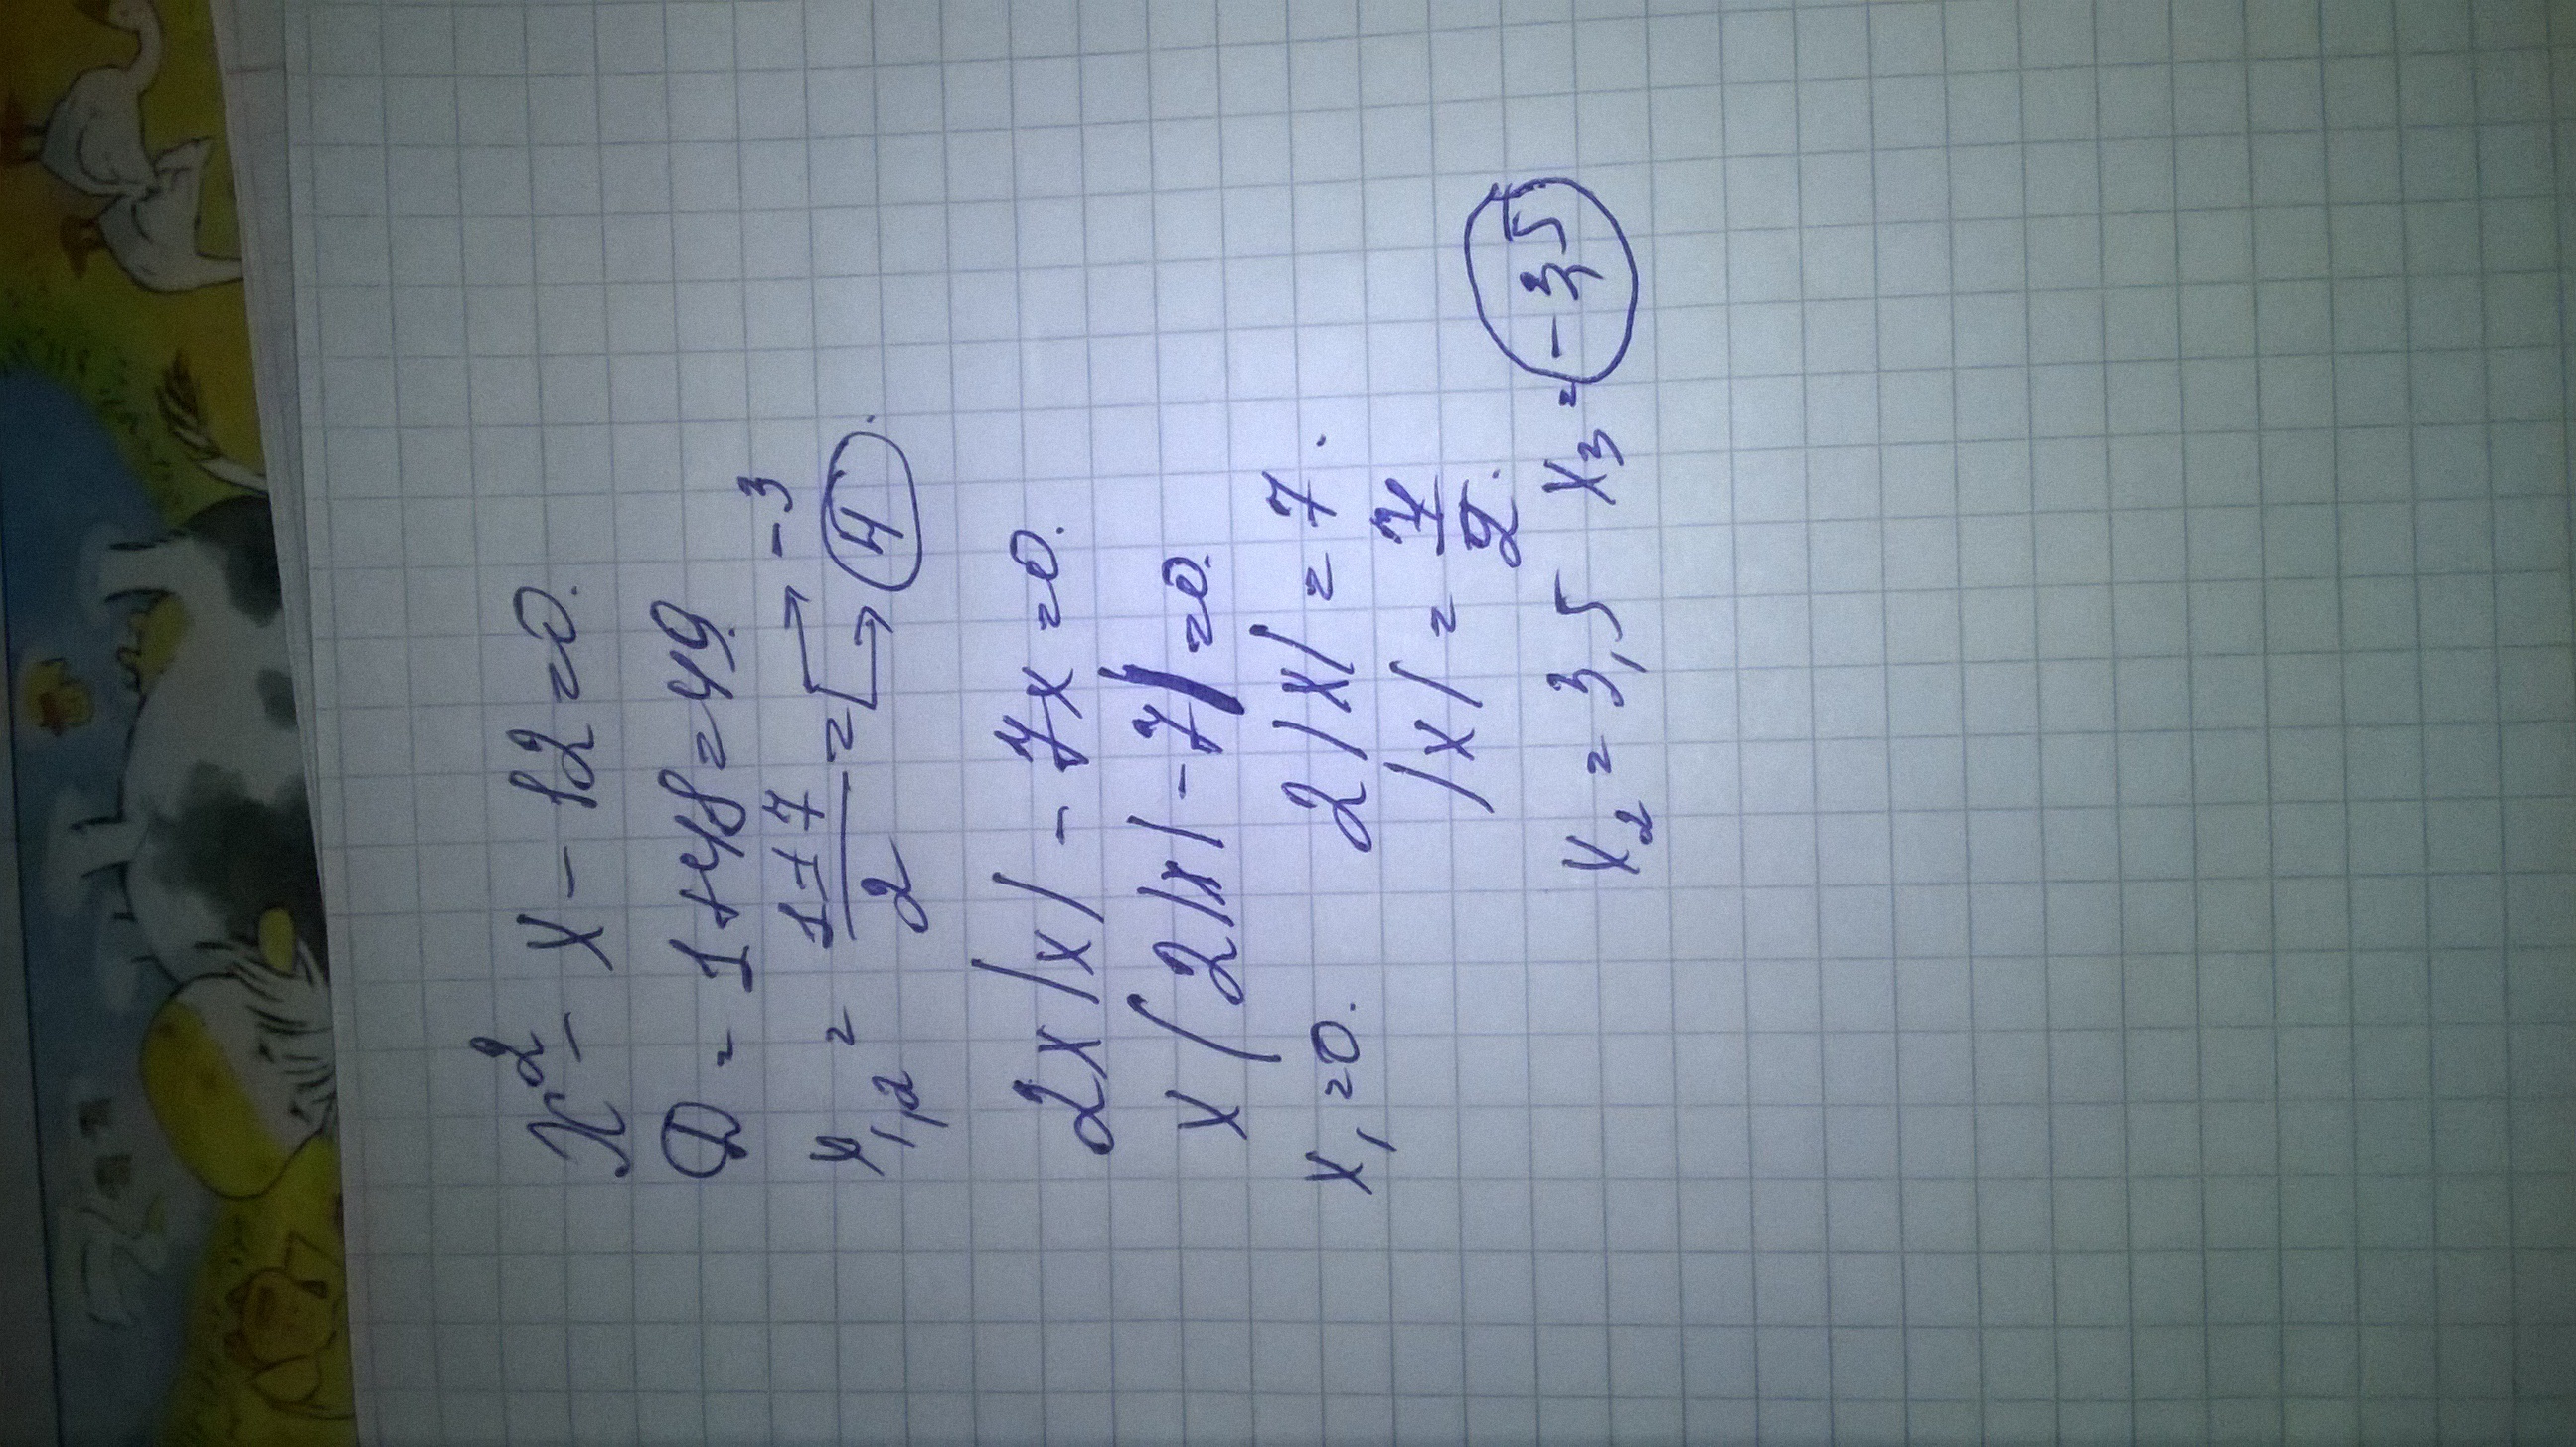 x² - x - 12 = 0.
D = 1 + 48 = 49.
x₁,₂ = (1 ± 7)/2 = [→ -3 → 4.
2x|x| - 7x = 0.
x(2|x| - 7) = 0.
x₁ = 0. 2|x| = 7.
|x| = 7/2.
x₂ = 3,5 x₃ = -3,5